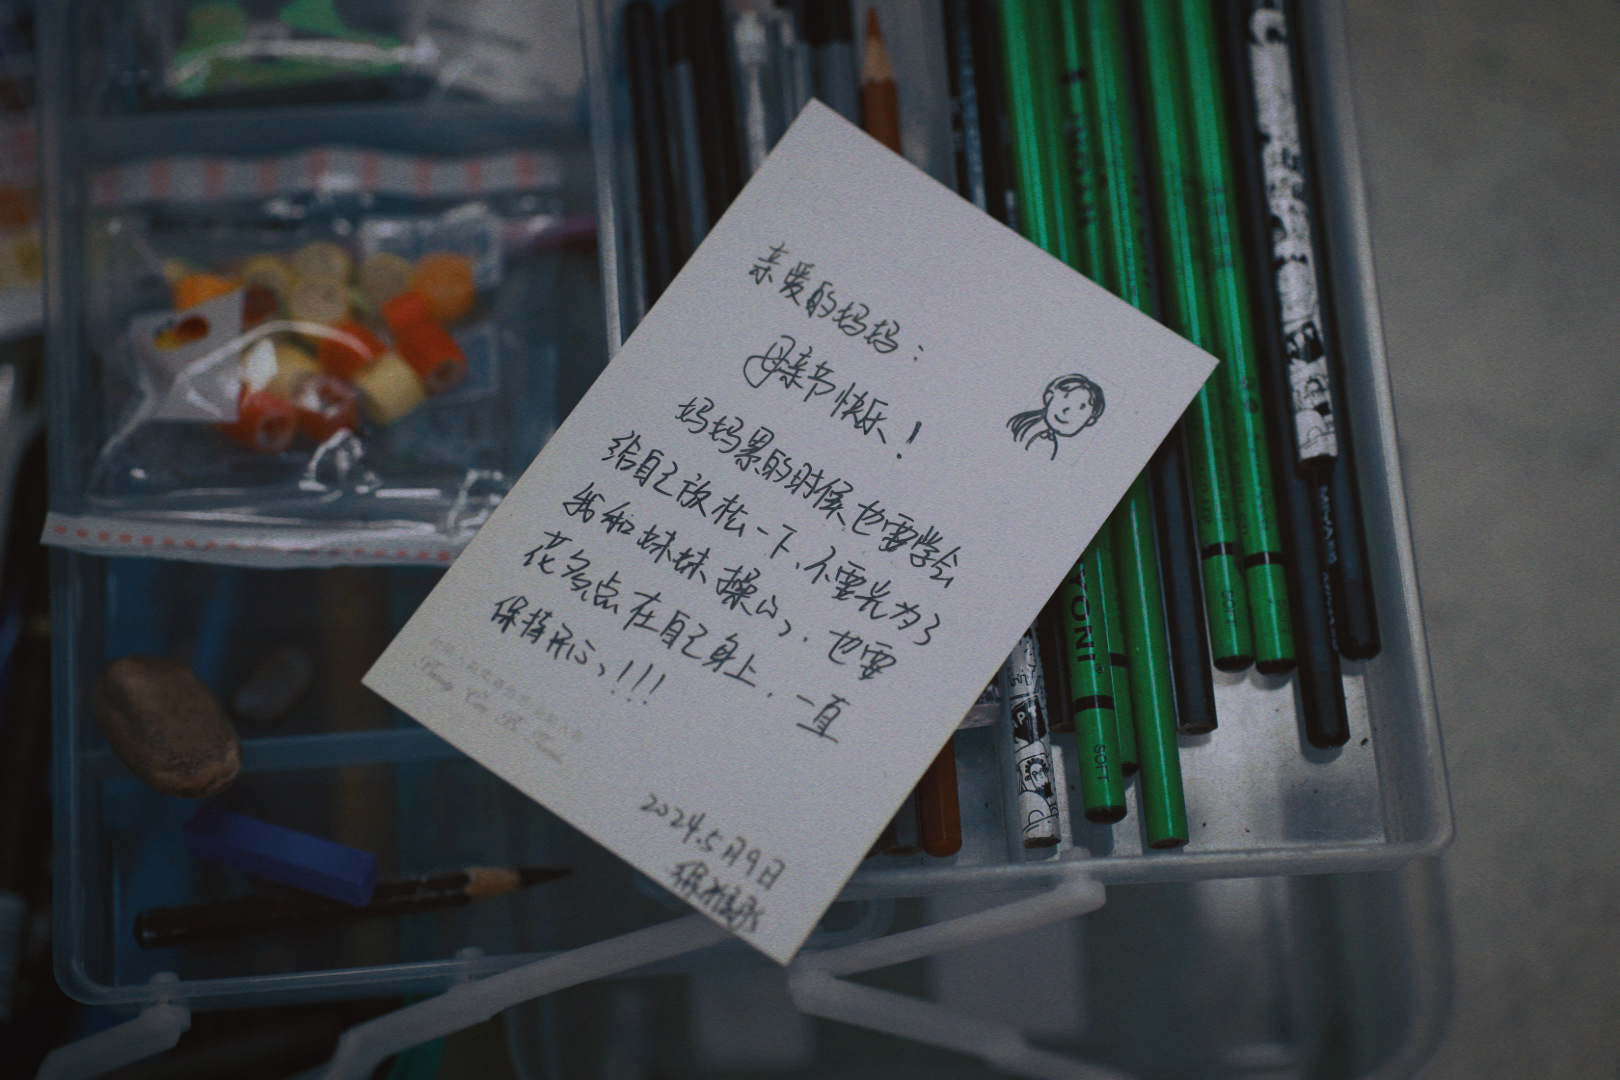 亲爱的妈妈：
母亲节快乐！
妈妈累的时候也要学会
给自己放松一下、不要光为了
我和妹妹操心，也要
花多点在自己身上，一直
保持开心，!!!
2024.5月9日
SOFT
SOFT
YONI